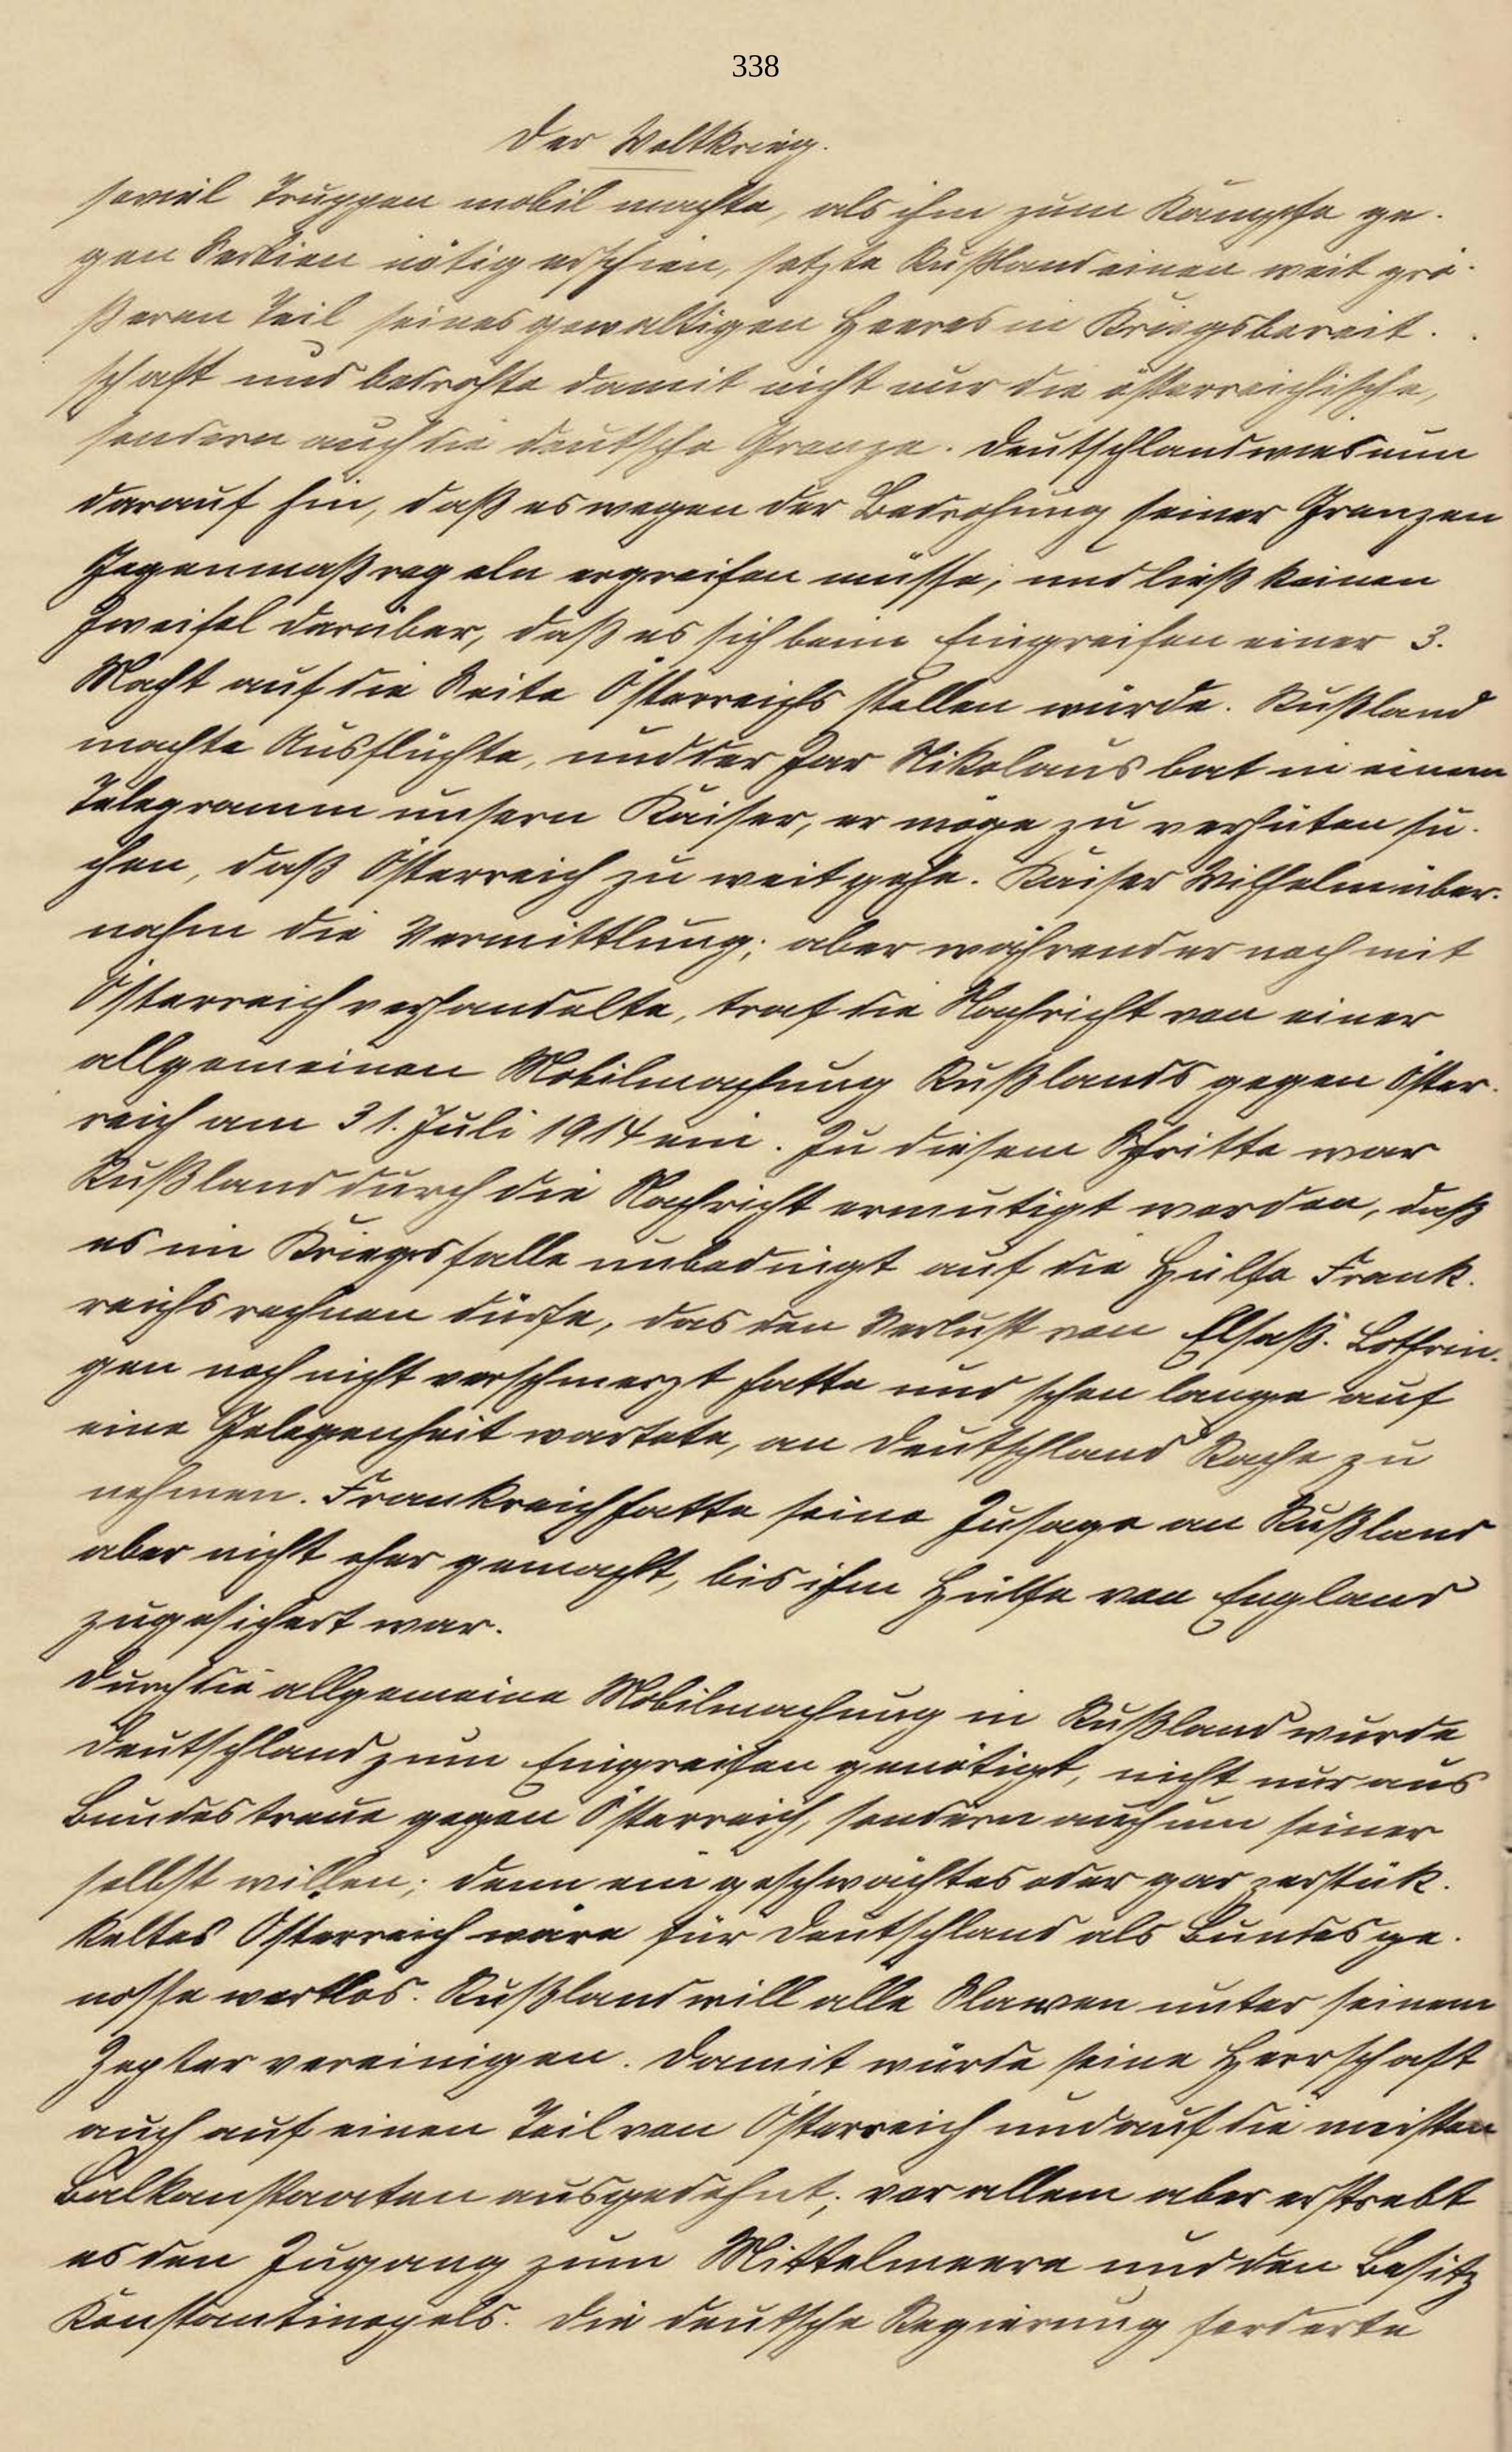 338
Der Weltkrieg.
soviel Truppen mobil machte, als ihm zum Kampfe ge-
gen Serbien nötig erschien, setzte Rußland einen weit grö-
ßeren Teil seines gewaltigen Heeres in Kriegsbereit-
schaft und bedrohte damit nicht nur die österreichische,
sondern auch die deutsche Grenze. Deutschland wies nun
darauf hin, daß es wegen der Bedrohung seiner Grenzen
Gegenmaßregeln ergreifen müsse, und ließ keinen
Zweifel darüber, daß es sich beim Eingreifen einer 3.
Macht auf die Seite Österreichs stellen würde. Rußland
machte Ausflüchte, und der Zar Nikolaus bat in einem
Telegramm unsern Kaiser, er möge zu verhüten su-
chen, daß Österreich zu weit gehe. Kaiser Wilhelm über-
nahm die Vermittlung; aber während er noch mit
Österreich verhandelte, traf die Nachricht von einer
allgemeinen Mobilmachung Rußlands gegen Öster-
reich am 31. Juli 1914 ein. Zu diesem Schritte war
Rußland durch die Nachricht ermutigt worden, daß
es im Kriegsfalle unbedingt auf die Hülfe Frank-
reichs rechnen dürfe, das den Verlust von Elsaß-Lothrin-
gen noch nicht verschmerzt hatte und schon lange auf
eine Gelegenheit wartete, an Deutschland Rache zu
nehmen. Frankreich hatte seine Zusage an Rußland
aber nicht eher gemacht, bis ihm Hülfe von England
zugesichert war.
Durch die allgemeine Mobilmachung in Rußland wurde
Deutschland zum Eingreifen genötigt, nicht nur aus
Bundestreue gegen Österreich, sondern auch um seiner
selbst willen; denn ein geschwächtes oder gar zerstük-
keltes Österreich wäre für Deutschland als Bundesge-
nosse wertlos. Rußland will alle Slawen unter seinem
Zepter vereinigen. Damit würde seine Herrschaft
auch auf einen Teil von Österreich und auf die meisten
Balkanstaaten ausgedehnt; vor allem aber erstrebt
es den Zugang zum Mittelmeere und den Besitz
Konstantinopels. Die deutsche Regierung forderte